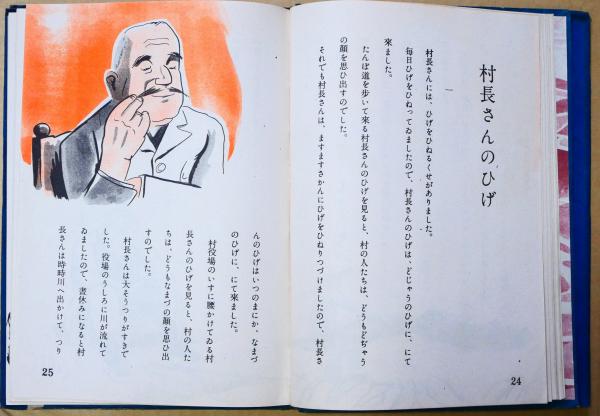 村長さんのひげ
一
村長さんには、ひげをひねるくせがありました。
毎日ひげをひねってゐましたので、村長さんのひげは、どじゃうのひげに、にて
來ました。
たんぼ道を歩いて來る村長さんのひげを見ると、村の人たちは、どうもどぢゃう
の顏を思ひ出すのでした。
それでも村長さんは、ますますさかんにひげをひねりつづけましたので、村長さ
24
んのひげはいつのまにか、なまづ
のひげに、にて來ました。
村役場のいすに腰かけてゐる村
長さんのひげを見ると、村の人た
ちは、どうもなまづの顏を思ひ出
すのでした。
村長さんは大そうつりがすきで
した。役場のうしろに川が流れて
ゐましたので、晝休みになると村
長さんは時時川へ出かけて、つり
25